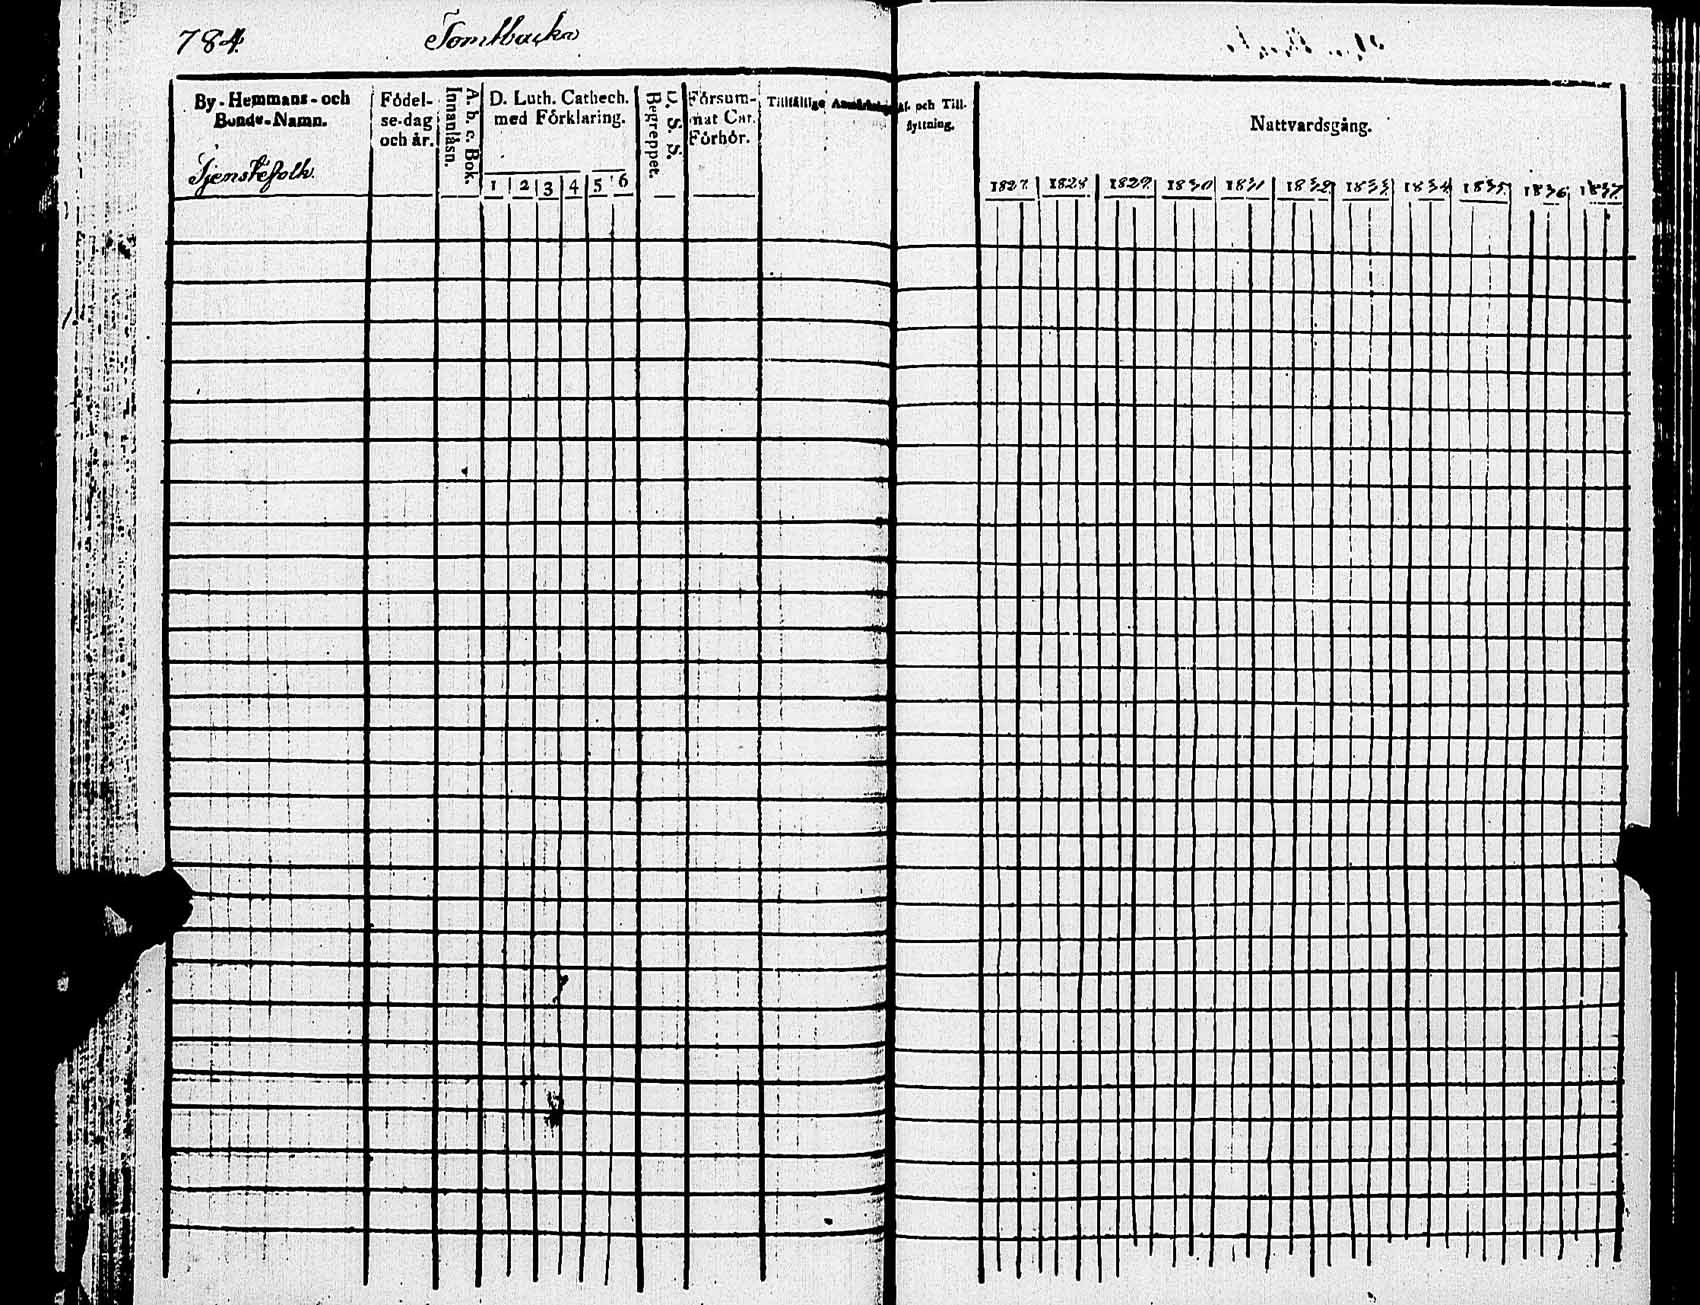 784. Tomtbacka
By-Hemmans-och
Bonde-Namn.
Tjenstefolk.
Födel-
se-dag
och år.
A. b. c. Bok.
Innanläsn.
D. Luth. Cathech.
med Förklaring.
1 2 3 4 5 6
D. S. S.
Begreppet.
Försum-
mat Cat.
Förhör.
Tillfällige Anmärkn
Af- och Till-
flyttning.
Nattvardsgång.
1827. 1828 1829. 1830 1831 1832 1833. 1834 1835. 1836 1837.